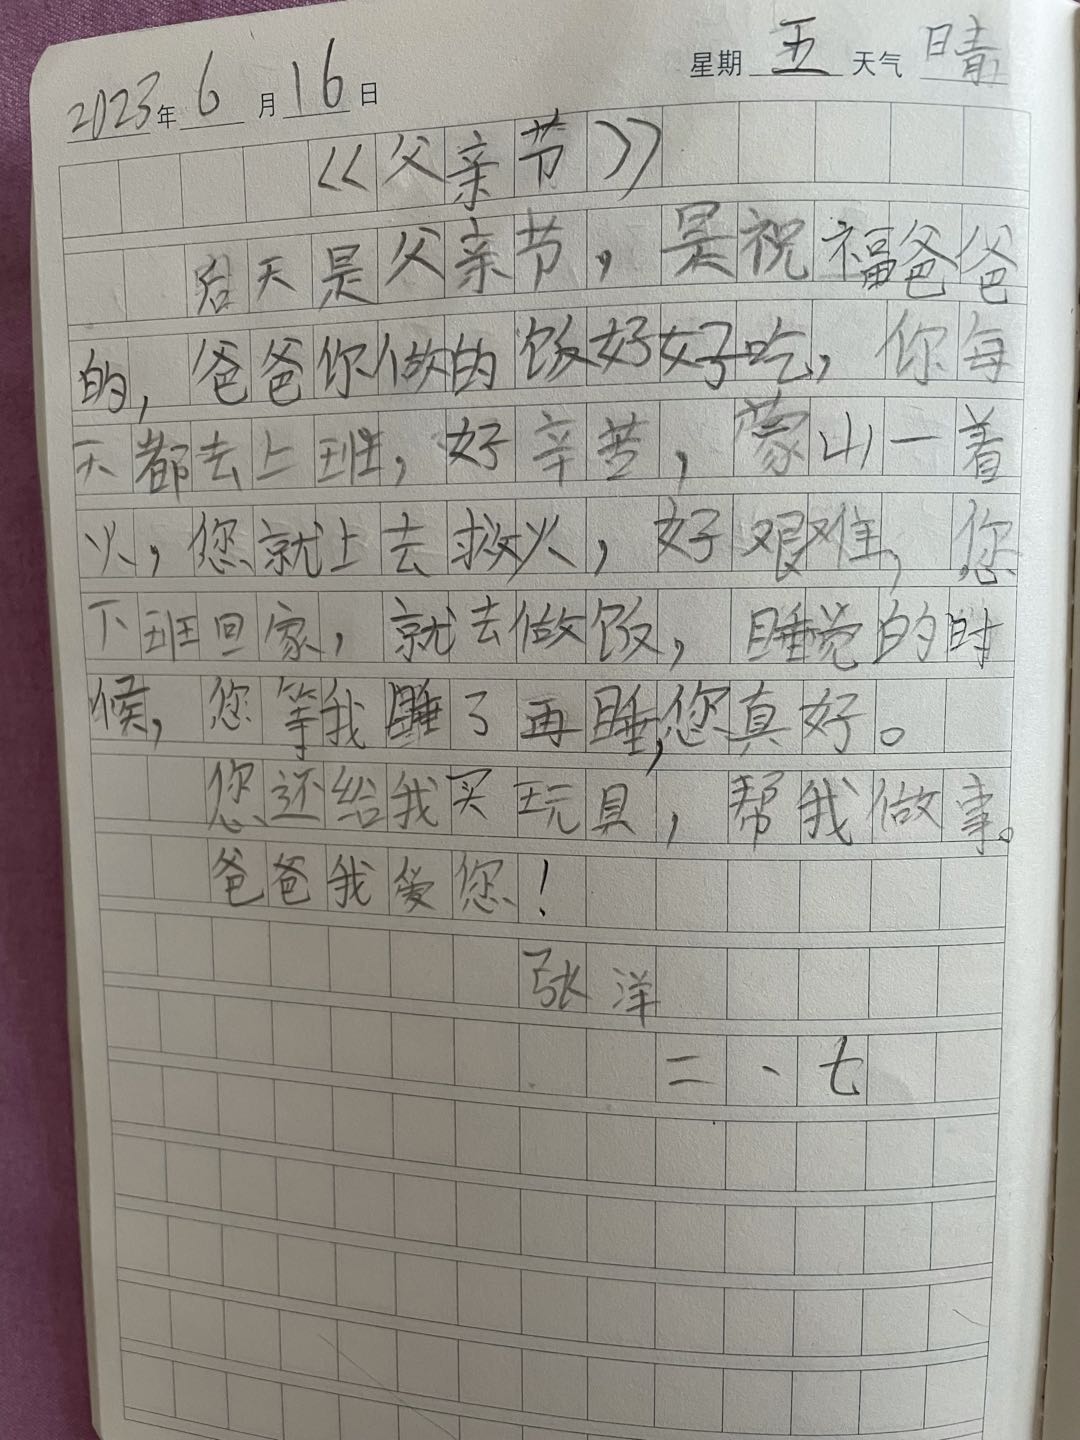 2023年6月16日 星期五 天气晴
《父亲节》
后天是父亲节，是祝福爸爸
的，爸爸你做的饭好好吃，你每
天都去上班，好辛苦，蒙山一着
火，您就上去救火，好艰难，您
下班回家，就去做饭，睡觉的时
候，您等我睡了再睡，您真好。
您还给我买玩具，帮我做事。
爸爸我爱您！
张洋
二、七